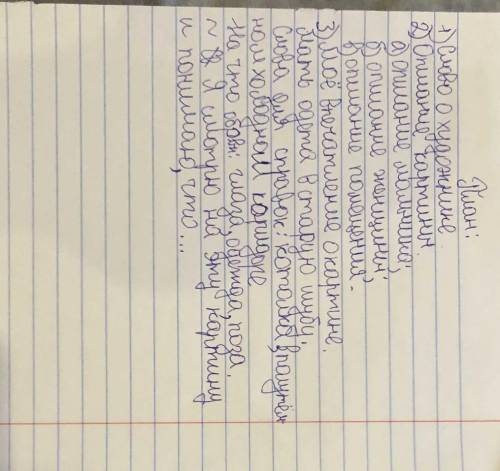 План:
1) Слово о художнике.
2) Описание картины.
а) описание мальчика;
б) описание женщины;
в) описание помещения.
3) Моё впечатление о картине.
Мать одета в старую шубу,
Слова для справок: каталка,
на холодном коридоре
На что обращ: глаза, одежда, поза.
~ Я смотрю на эту картину
и понимаю, что...